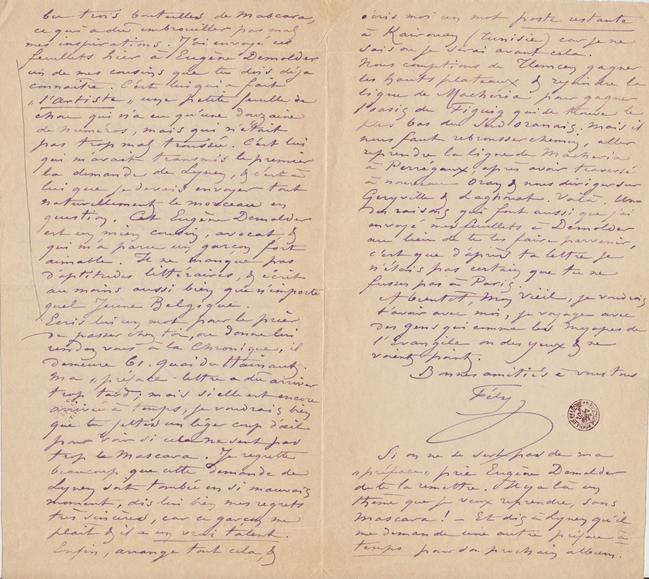 bu trois bouteilles de Mascara,
ce qui a dû embrouiller pas mal
mes inspirations. J'ai envoyé ces
feuillets hier à Eugène Demolder
un de mes cousins que tu dois déjà
connaître. C'est lui qui a fait
"l'Artiste" une petite feuille de
chou qui n'a eu qu'une douzaine
de numéros, mais qui n'était
pas trop mal troussée. C'est lui
qui m'avait transmis le premier
la demande de Lynen, & c'est à
lui que je devais envoyer tout
naturellement le morceau en
question. Cet Eugène Demolder
est un mien cousin, avocat, &
qui m'a paru un garçon fort
aimable. Il ne manque pas
d'aptitudes littéraires, & écrit
au moins aussi bien que n'importe
quel Jeune Belgique.
Ecris lui un mot pour le prier
de passer chez toi, ou donne lui
rendez vous à la Chronique, il
demeure 61. Quai du Hainaut.
Ma "préface-lettre" a dû arriver
trop tard, mais si elle est encore
arrivée à temps, je voudrais bien
que tu jettes un léger coup d'œil
pour voir si cela ne sent pas
trop le Mascara. Je regrette
beaucoup que cette demande de
Lynen soit tombée en si mauvais
moment, dis lui bien mes regrets
très sincères, car ce garçon me
plaît & il a un vrai talent.
Enfin, arrange tout cela, &
écris moi un mot poste restante
à Kairouan (Tunisie) car je ne
sais où je serai avant cela.
Nous comptions de Tlemcen gagner
les hauts plateaux & rejoindre la
ligne de Mécheria pour gagner
l'oasis de Figuig qui se trouve le
plus bas du Sud Oranais. Mais il
nous faut rebrousser chemin, aller
reprendre la ligne de Mécheria
à Perrégaux, après avoir traversé
à nouveau Oran & nous diriger sur
Géryville & Laghouat. Voilà. Une
des raisons qui font aussi que j'ai
envoyé mes feuillets à Demolder
au lieu de te les faire parvenir,
c'est que d'après ta lettre je
n'étais pas certain que tu ne
fusses pas à Paris.
A bientôt, mon vieil, je voudrais
t'avoir avec moi, je voyage avec
des gens qui comme les myopes de
l'Evangile ont des yeux & ne
voient point.
Bonnes amitiés à vous tous
Fély
Si on ne se sert pas de ma
"préface" prie Eugène Demolder
de te la remettre. Il y a là un
thème que je veux reprendre, sans
Mascara! — Et dis à Lynen qu'il
me demande une autre préface à
temps pour son prochain album.